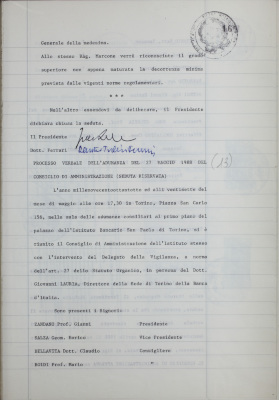 Generale della medesima.
Allo stesso Rag. Marcone verrà riconosciuto il grado
superiore non appena maturata la decorrenza minima
prevista dalle vigenti norme regolamentari.
* * *
Null'altro essendovi da deliberare, il Presidente
dichiara chiusa la seduta.
Il Presidente
Dott. Ferrari
PROCESSO VERBALE DELL'ADUNANZA DEL 27 MAGGIO 1988 DEL (13)
CONSIGLIO DI AMMINISTRAZIONE (SEDUTA RISERVATA)
L'anno millenovecentoottantotto addì ventisette del
mese di maggio alle ore 17,30 in Torino, Piazza San Carlo
156, nella sala delle adunanze consiliari al primo piano del
palazzo dell'Istituto Bancario San Paolo di Torino, si è
riunito il Consiglio di Amministrazione dell'Istituto stesso
con l'intervento del Delegato della Vigilanza, a norma
dell'art. 27 dello Statuto Organico, in persona del Dott.
Giovanni LAURIA, Direttore della Sede di Torino della Banca
d'Italia.
Sono presenti i Signori:
ZANDANO Prof. Gianni Presidente
SALZA Geom. Enrico Vice Presidente
BELLAVITA Dott. Claudio Consigliere
BOIDI Prof. Mario "